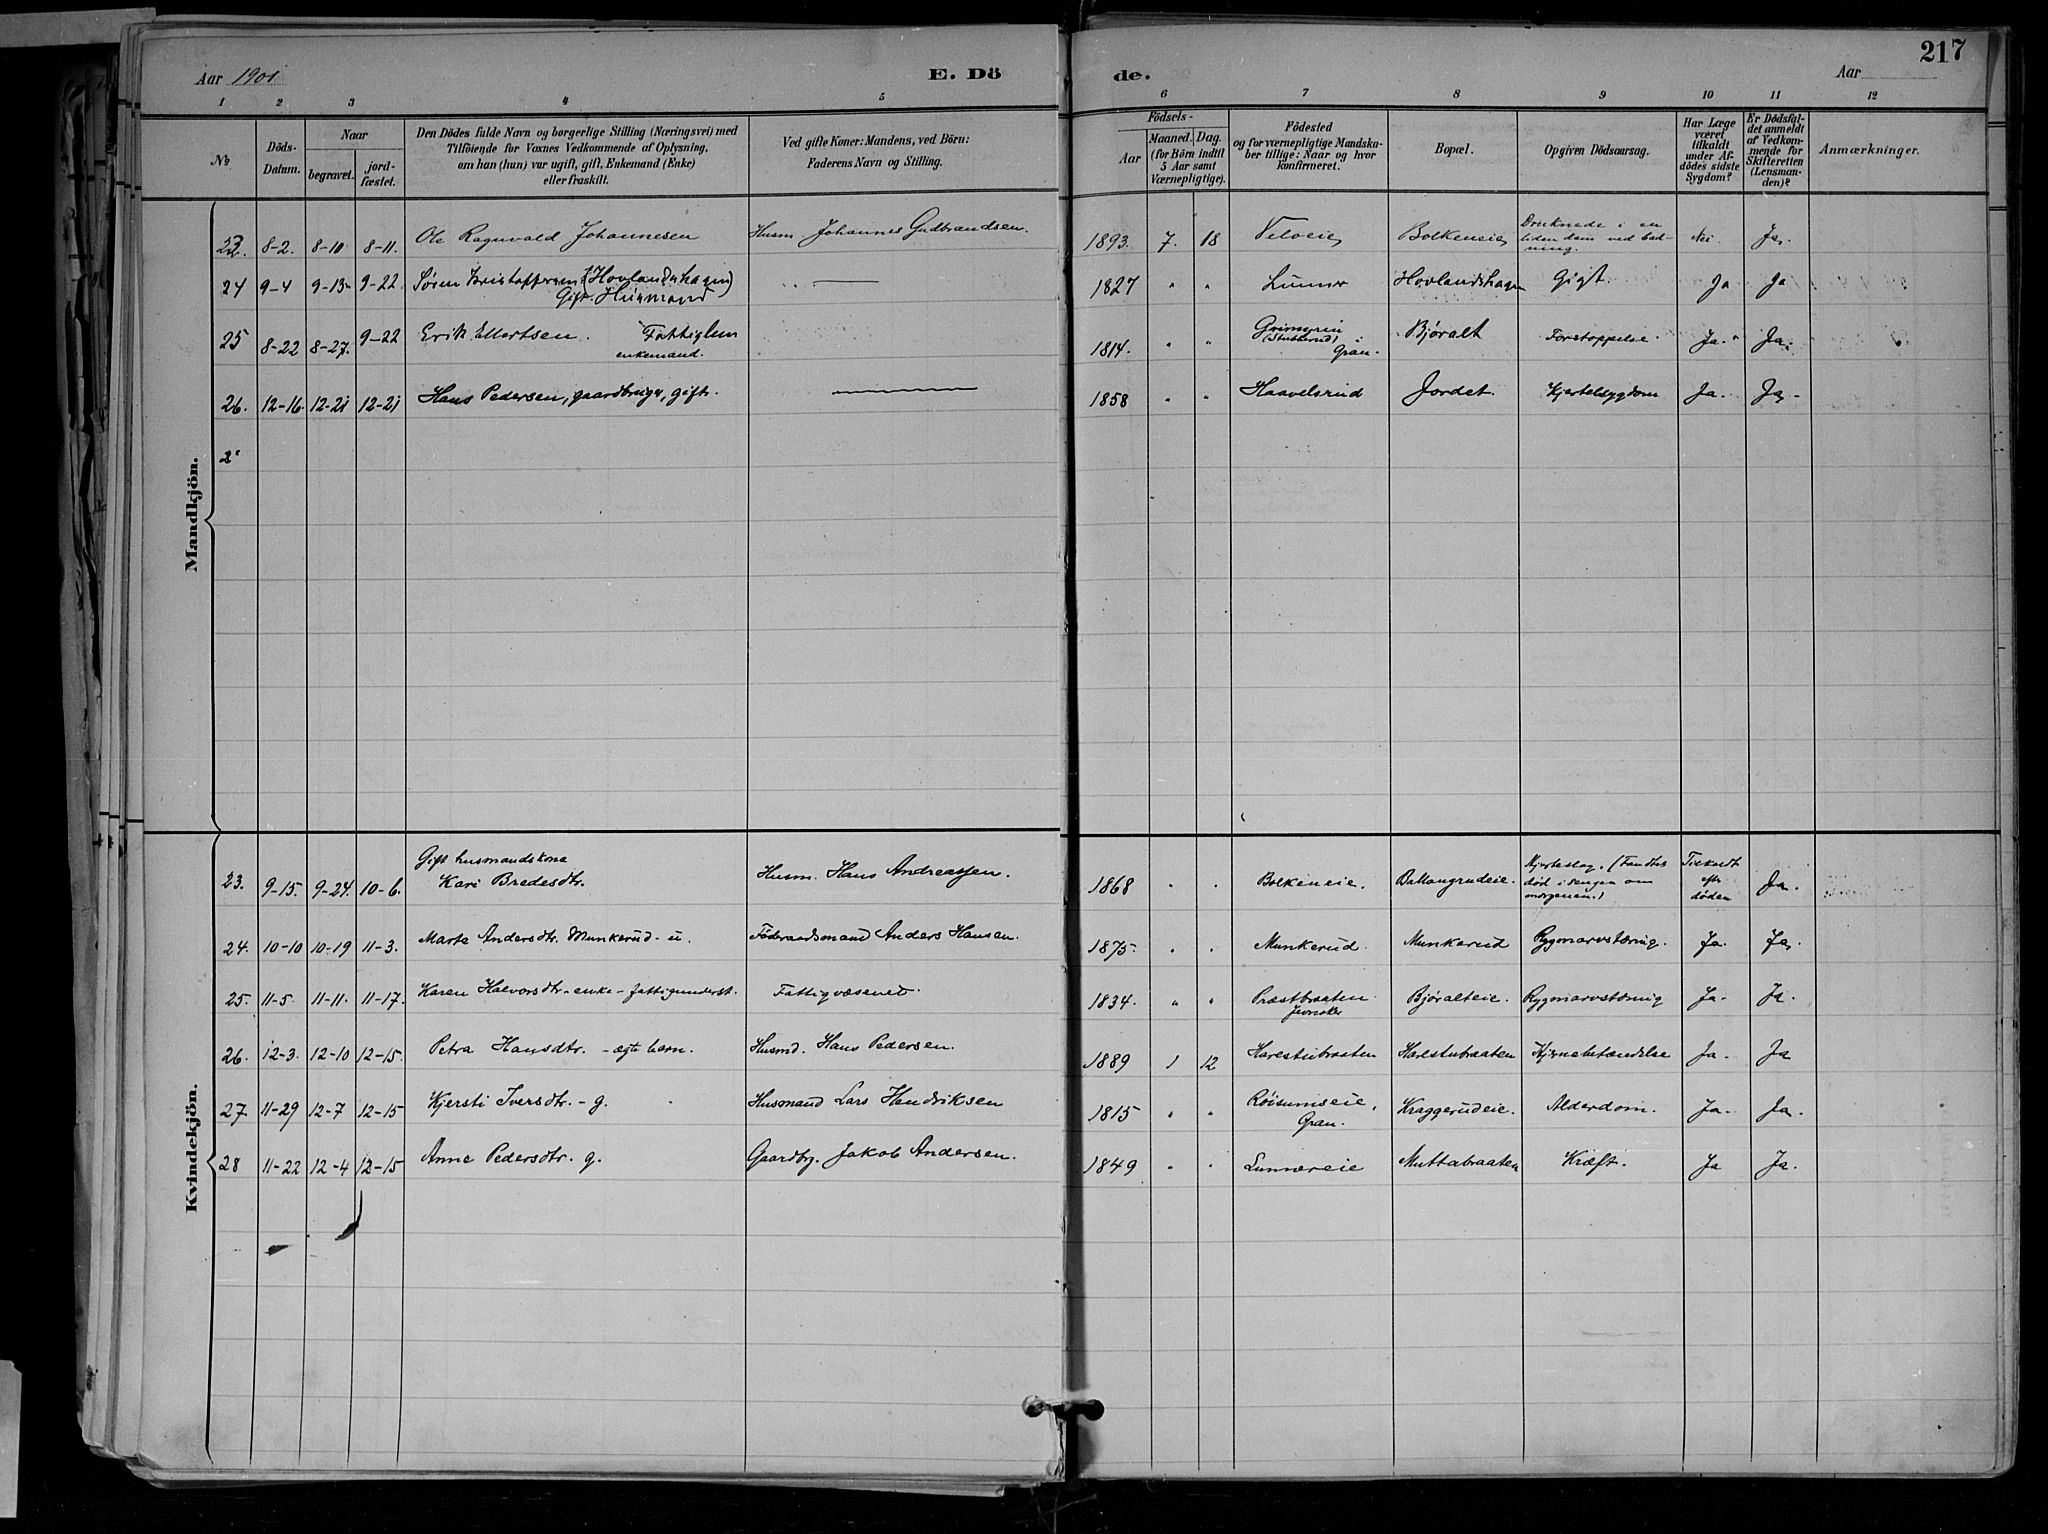 217
Aar 1901.
E. Dö
de.
Aar
1 2 3 4 5 6 7 8 9 10 11 12
No
Döds-
Datum.
Naar
begravet.
jord-
fæstet.
Den Dödes fulde Navn og borgerlige Stilling (Næringsvei) med
Tilföiende for Voxnes Vedkommende af Oplysning,
om han (hun) var ugift, gift, Enkemand (Enke)
eller fraskilt.
Ved gifte Koner: Mandens, ved Börn:
Faderens Navn og Stilling.
Födsels-
Aar
Maaned. Dag.
(for Börn indtil
5 Aar samt
Værnepligtige).
Födested
og for værnepligtige Mandska-
ber tillige: Naar og hvor
konfirmeret.
Bopæl.
Opgiven Dödsaarsag.
Har Læge
været
tilkaldt
under Af-
dödes sidste
Sygdom?
Er Dödsfal-
det anmeldt
af Vedkom-
mende for
Skifteretten
(Lensman-
den)?
Anmærkninger.
Mandkjön.
23. 8-2. 8-10 8-11. Ole Ragnvald Johannesen Husm. Johannes Gudbrandsen. 1893. 7. 18 Velveie Bolkeneie Druknede i en
liden dam ved bad-
ning. Nei Ja.
24 9-4 9-13 9-22 Søren Kristoffersen (Hovlandshagen)
Gift. Husmand 1827 " " Lunner Hovlandshagen Gigt. Ja Ja
25 8-22 8-27. 9-22 Erik Ellertsen. Fattiglem
enkemand. 1814. " " Grimsrin
(Stubberud)
Gran. Bjøralt Forstoppelse. Ja. Ja.
26. 12-16. 12-21 12-21 Hans Pedersen, gaardbruger, gift. 1858 " " Haavelsrud Jordet. Kjertelsygdom Ja. Ja.
Kvindekjön.
23. 9-15. 9-24. 10-6. Gift husmandskone
Kari Bredesdtr. Husm. Hans Andreassen. 1868 " " Bolkeneie. Ballangrudeie. Hjerteslag. (Fandtes
død i sengen om
morgenen.) Tilkaldt
efter
døden Ja.
24. 10-10 10-19 11-3. Marte Andersdtr. Munkerud - u. Føderaadsmand Anders Hansen. 1875. " " Munkerud. Munkerud Rygmarvstæring. Ja. Ja.
25. 11-5. 11-11. 11-17. Karen Halvorsdtr - enke - fattigunderst. Fattigvæsenet. 1834. " " Præstbraaten.
Jevnaker Bjøralteie. Rygmarvstæring Ja. Ja.
26. 12-3. 12-10 12-15. Petra Hansdtr. - ægte barn. Husmd. Hans Pedersen. 1889 1 12 Harestubraaten Harestubraaten Hjernebetændelse Ja. Ja
27. 11-29 12-7 12-15 Kjersti Iversdtr. - g. Husmand Lars Hendriksen 1815 " " Røisumseie,
Gran. Kraggerudeie. Alderdom. Ja. Ja.
28 11-22 12-4 12-15 Anne Pedersdtr. g. Gaardbr. Jakob Andersen. 1849 " " Lunnereie Muttabraaten Kræft. Ja Ja.